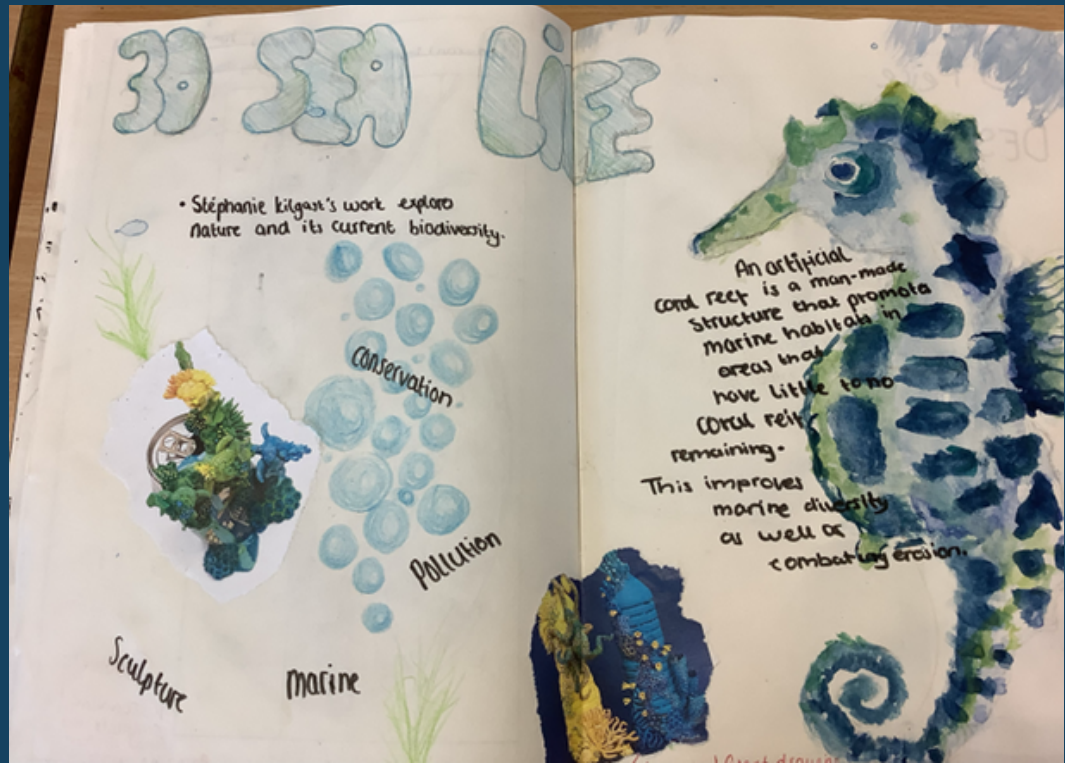 3D SEA LIFE
• Stéphanie kilgast's work explore
nature and its current biodiversity.
conservation
Pollution
Sculpture
marine
An artificial
coral reef is a man-made
structure that promote
marine habitats in
areas that
have little to no
coral reif
remaining.
This improves
marine diversity
as well as
combating erosion.